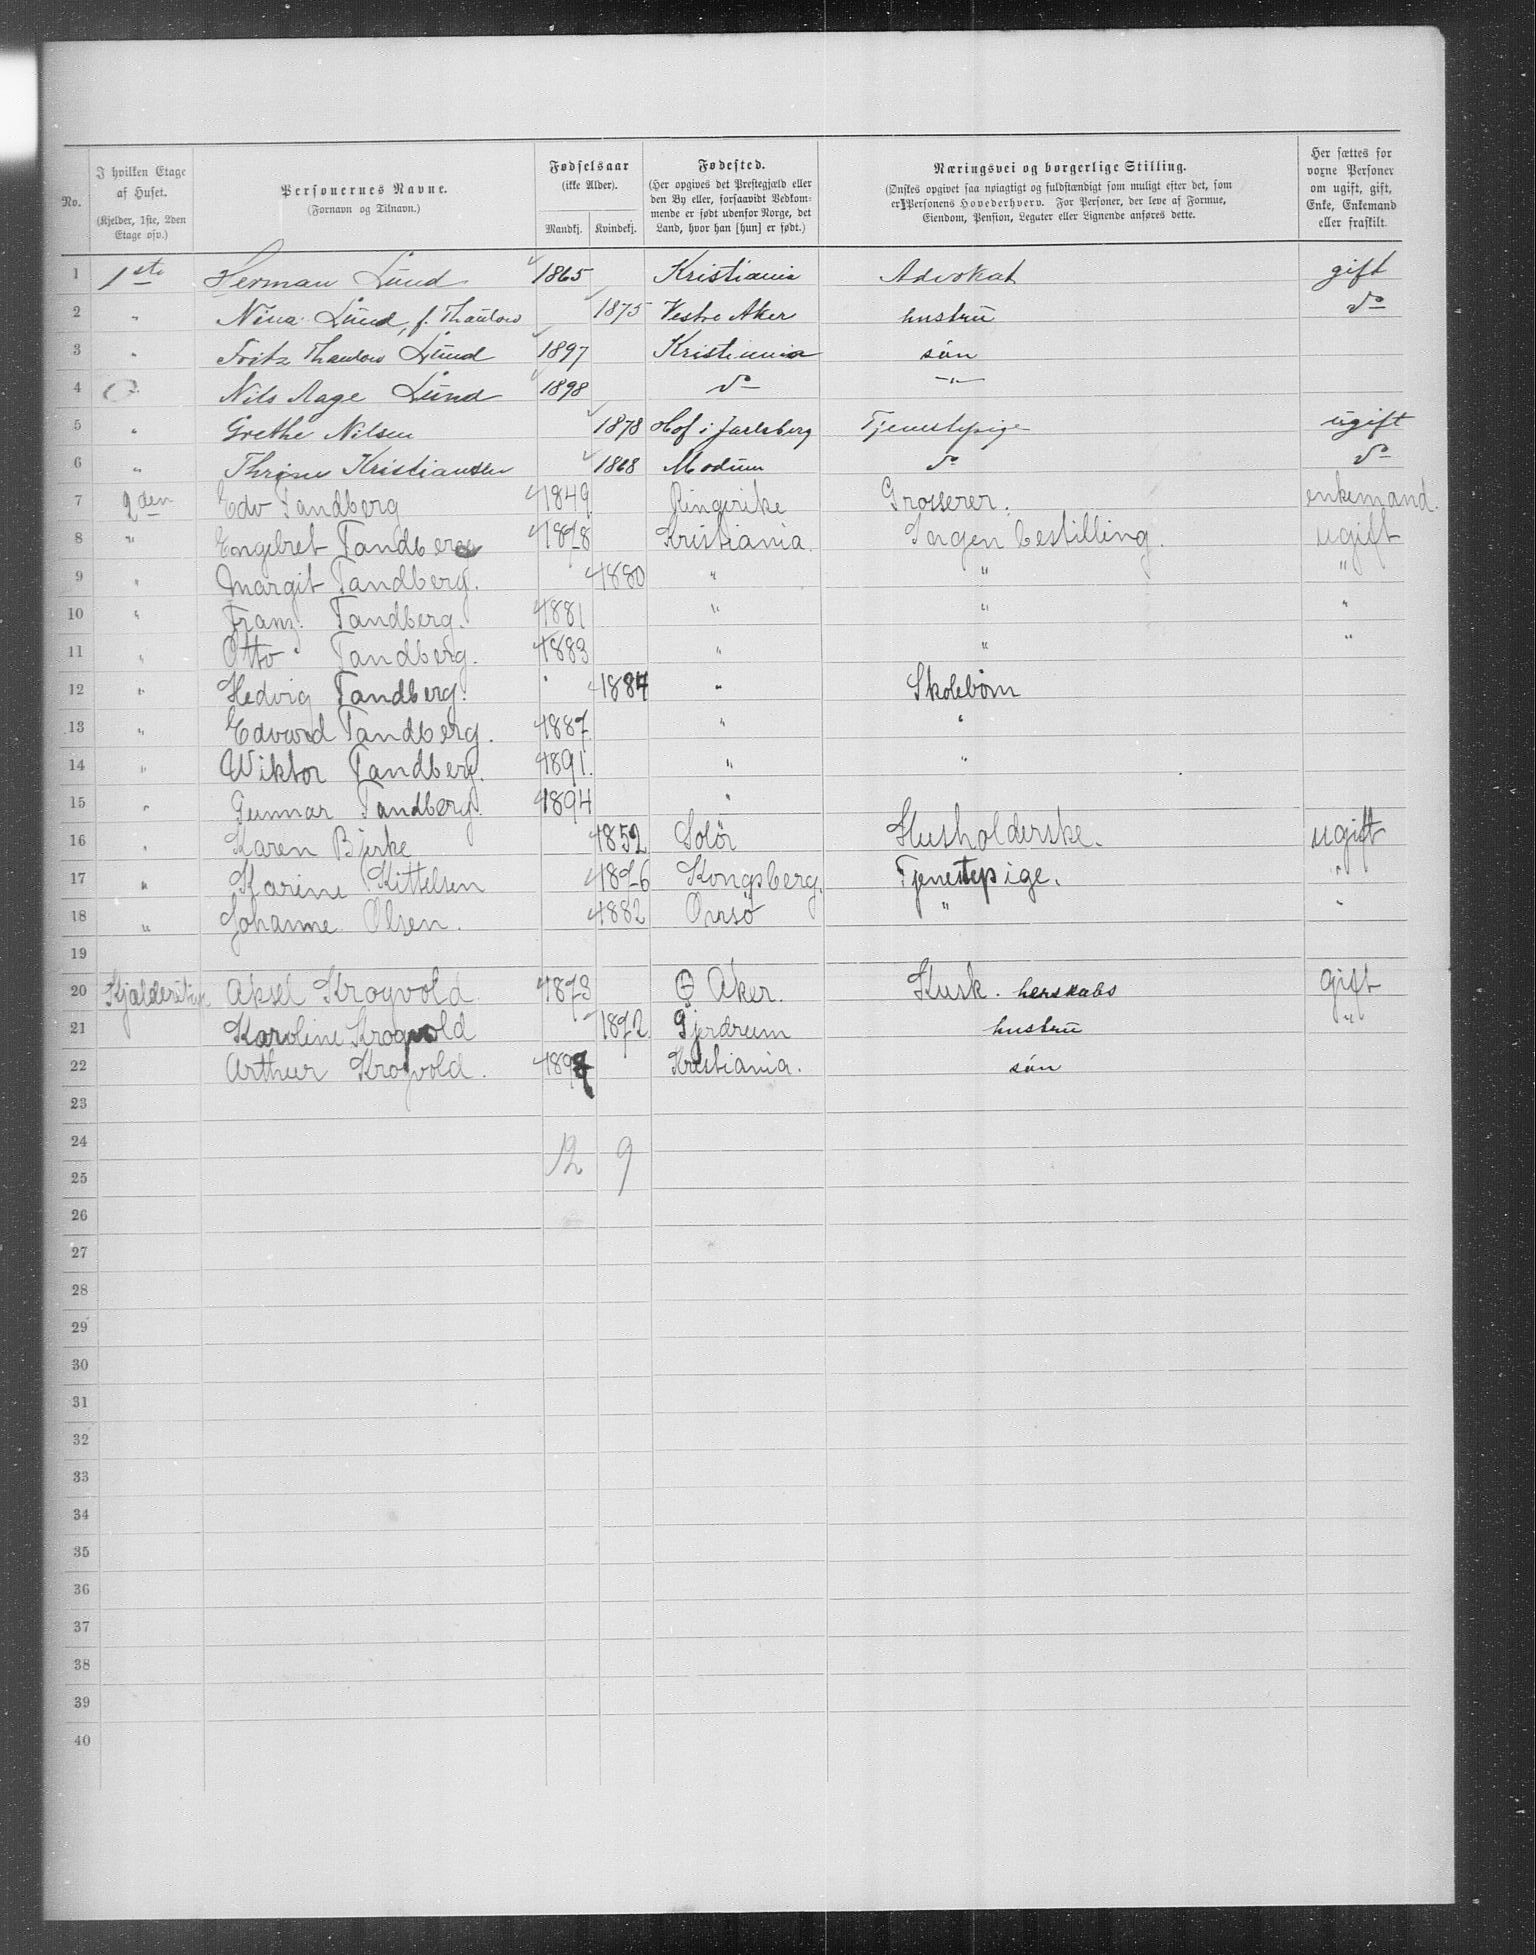 No. | I hvilken Etage af Huset. (Kjelder, 1ste, 2den Etage osv.) | Personernes Navne. (Fornavn og Tilnavn.) | Fødselsaar (ikke Alder). Mandkj. | Kvindekj. | Fødested. (Her opgives det Prestegjæld eller den By eller, forsaavidt Vedkommende er født udenfor Norge, det Land, hvor han [hun] er født.) | Næringsvei og borgerlige Stilling. (Ønskes opgivet saa nøiagtigt og fuldstændigt som muligt efter det, som er Personens Hovederhverv. For Personer, der leve af Formue, Eiendom, Pension, Legater eller Lignende anføres dette. | Her sættes for voxne Personer om ugift, gift, Enke, Enkemand eller fraskilt.
1 | 1ste | Herman Lund | 1865 | | Kristiania | Advokat | gift
2 | " | Nina Lund, f. Thaulow | | 1875 | Vestre Aker | hustru | do
3 | " | Fritz Thaulow Lund | 1897 | | Kristiania | søn
4 | " | Nils Aage Lund | 1898 | | do | -"-
5 | " | Grethe Nilsen | | 1878 | Hof i Jarlsberg | Tjenestepige | ugift
6 | " | Thrine Kristiansen | | 1868 | Modum | do | do
7 | 2den | Edv Tandberg | 1849 | | Ringerike | Grosserer. | enkemand.
8 | " | Engebret Tandberg | 1878 | | Kristiania. | Ingen bestilling. | ugift
9 | " | Margit Tandberg. | | 1880 | " | " | "
10 | " | Franz Tandberg. | 1881 | | " | " | "
11 | " | Otto Tandberg. | 1883 | | " | " | "
12 | " | Hedvig Tandberg. | " | 1884 | " | Skolebørn
13 | " | Edvard Tandberg. | 1887. | | " | "
14 | " | Wiktor Tandberg. | 1891. | | " | "
15 | " | Gunnar Tandberg. | 1894 | | "
16 | " | Karen Bjerke | | 1852 | Solør | Husholderske. | ugift
17 | " | Karine Kittelsen | | 1876 | Kongsberg. | Tjenestepige. | "
18 | " | Johanne Olsen. | | 1882 | Onsø | " | "
19
20 | | Aksel Krogvold | 1873 | | Ø Aker. | Kusk. herskabs | gift
21 | | Karoline Krogvold | | 1872. | Gjerdrum | hustru | "
22 | | Arthur Krogvold. | 1897 | | Kristiania. | søn
23
24 | | | 12 | 9
25
26
27
28
29
30
31
32
33
34
35
36
37
38
39
40